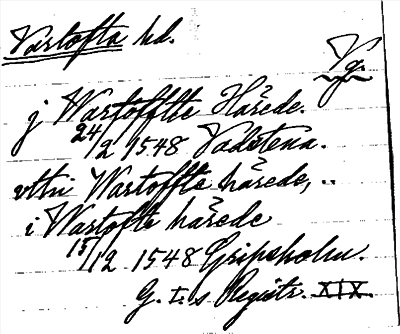 Vartofta hd.
Vg.
j Wartofftte Hårede.
24/2 1548 Vadstena.
vthi Wartoffte hårede, ..
i Wartofte hårede
15/12 1548 Gripsholm.
G. I:s Registr. XIX.